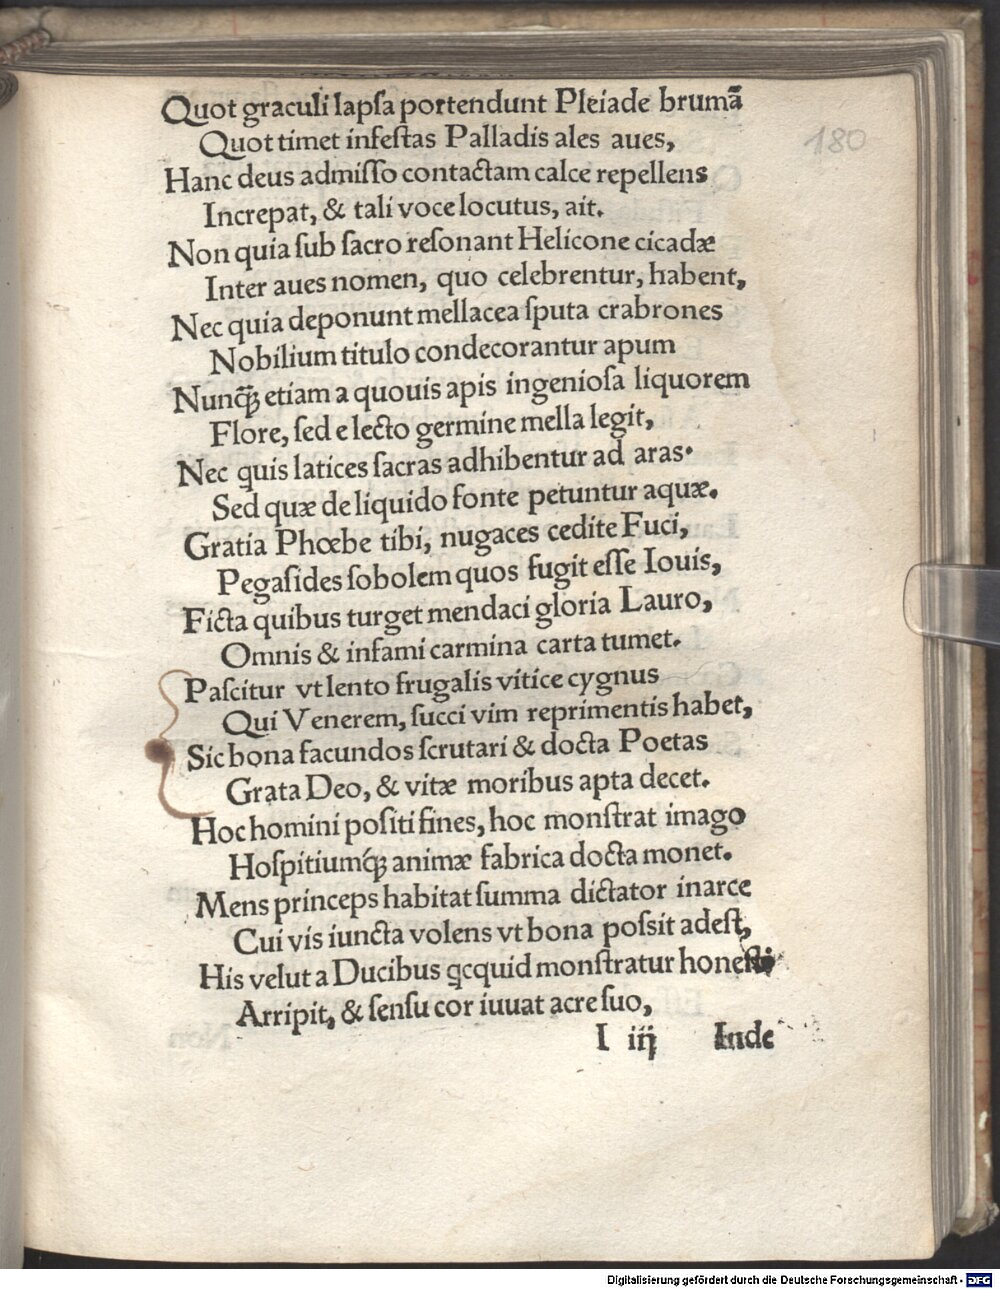 Quot graculi lapſa portendunt Pleiade brumā
Quot timet infeſtas Palladis ales aues,
180
Hanc deus admiſſo contactam calce repellens
Increpat, & tali voce locutus, ait.
Non quia ſub ſacro reſonant Helicone cicadæ
Inter aues nomen, quo celebrentur, habent,
Nec quia deponunt mellacea ſputa crabrones
Nobilium titulo condecorantur apum
Nunꝙ̃ etiam a quouis apis ingenioſa liquorem
Flore, ſed electo germine mella legit,
Nec quis latices ſacras adhibentur ad aras.
Sed quæ de liquido fonte petuntur aquæ.
Gratia Phœbe tibi, nugaces cedite Fuci,
Pegaſides ſobolem quos fugit eſſe Iouis,
Ficta quibus turget mendaci gloria Lauro,
Omnis & infami carmina carta tumet.
Paſcitur vt lento frugalis vitice cygnus
Qui Venerem, ſucci vim reprimentis habet,
Sic bona facundos ſcrutari & docta Poetas
Grata Deo, & vitæ moribus apta decet.
Hoc homini poſiti fines, hoc monſtrat imago
Hoſpitiumq́ꝫ animæ fabrica docta monet.
Mens princeps habitat ſumma dictator inarce
Cui vis iuncta volens vt bona poſsit adeſt,
His velut a Ducibus ꝗcquid monſtratur honeſti
Arripit, & ſenſu cor iuuat acre ſuo,
I iij Inde
Digitalisierung gefördert durch die Deutsche Forschungsgemeinschaft - DFG